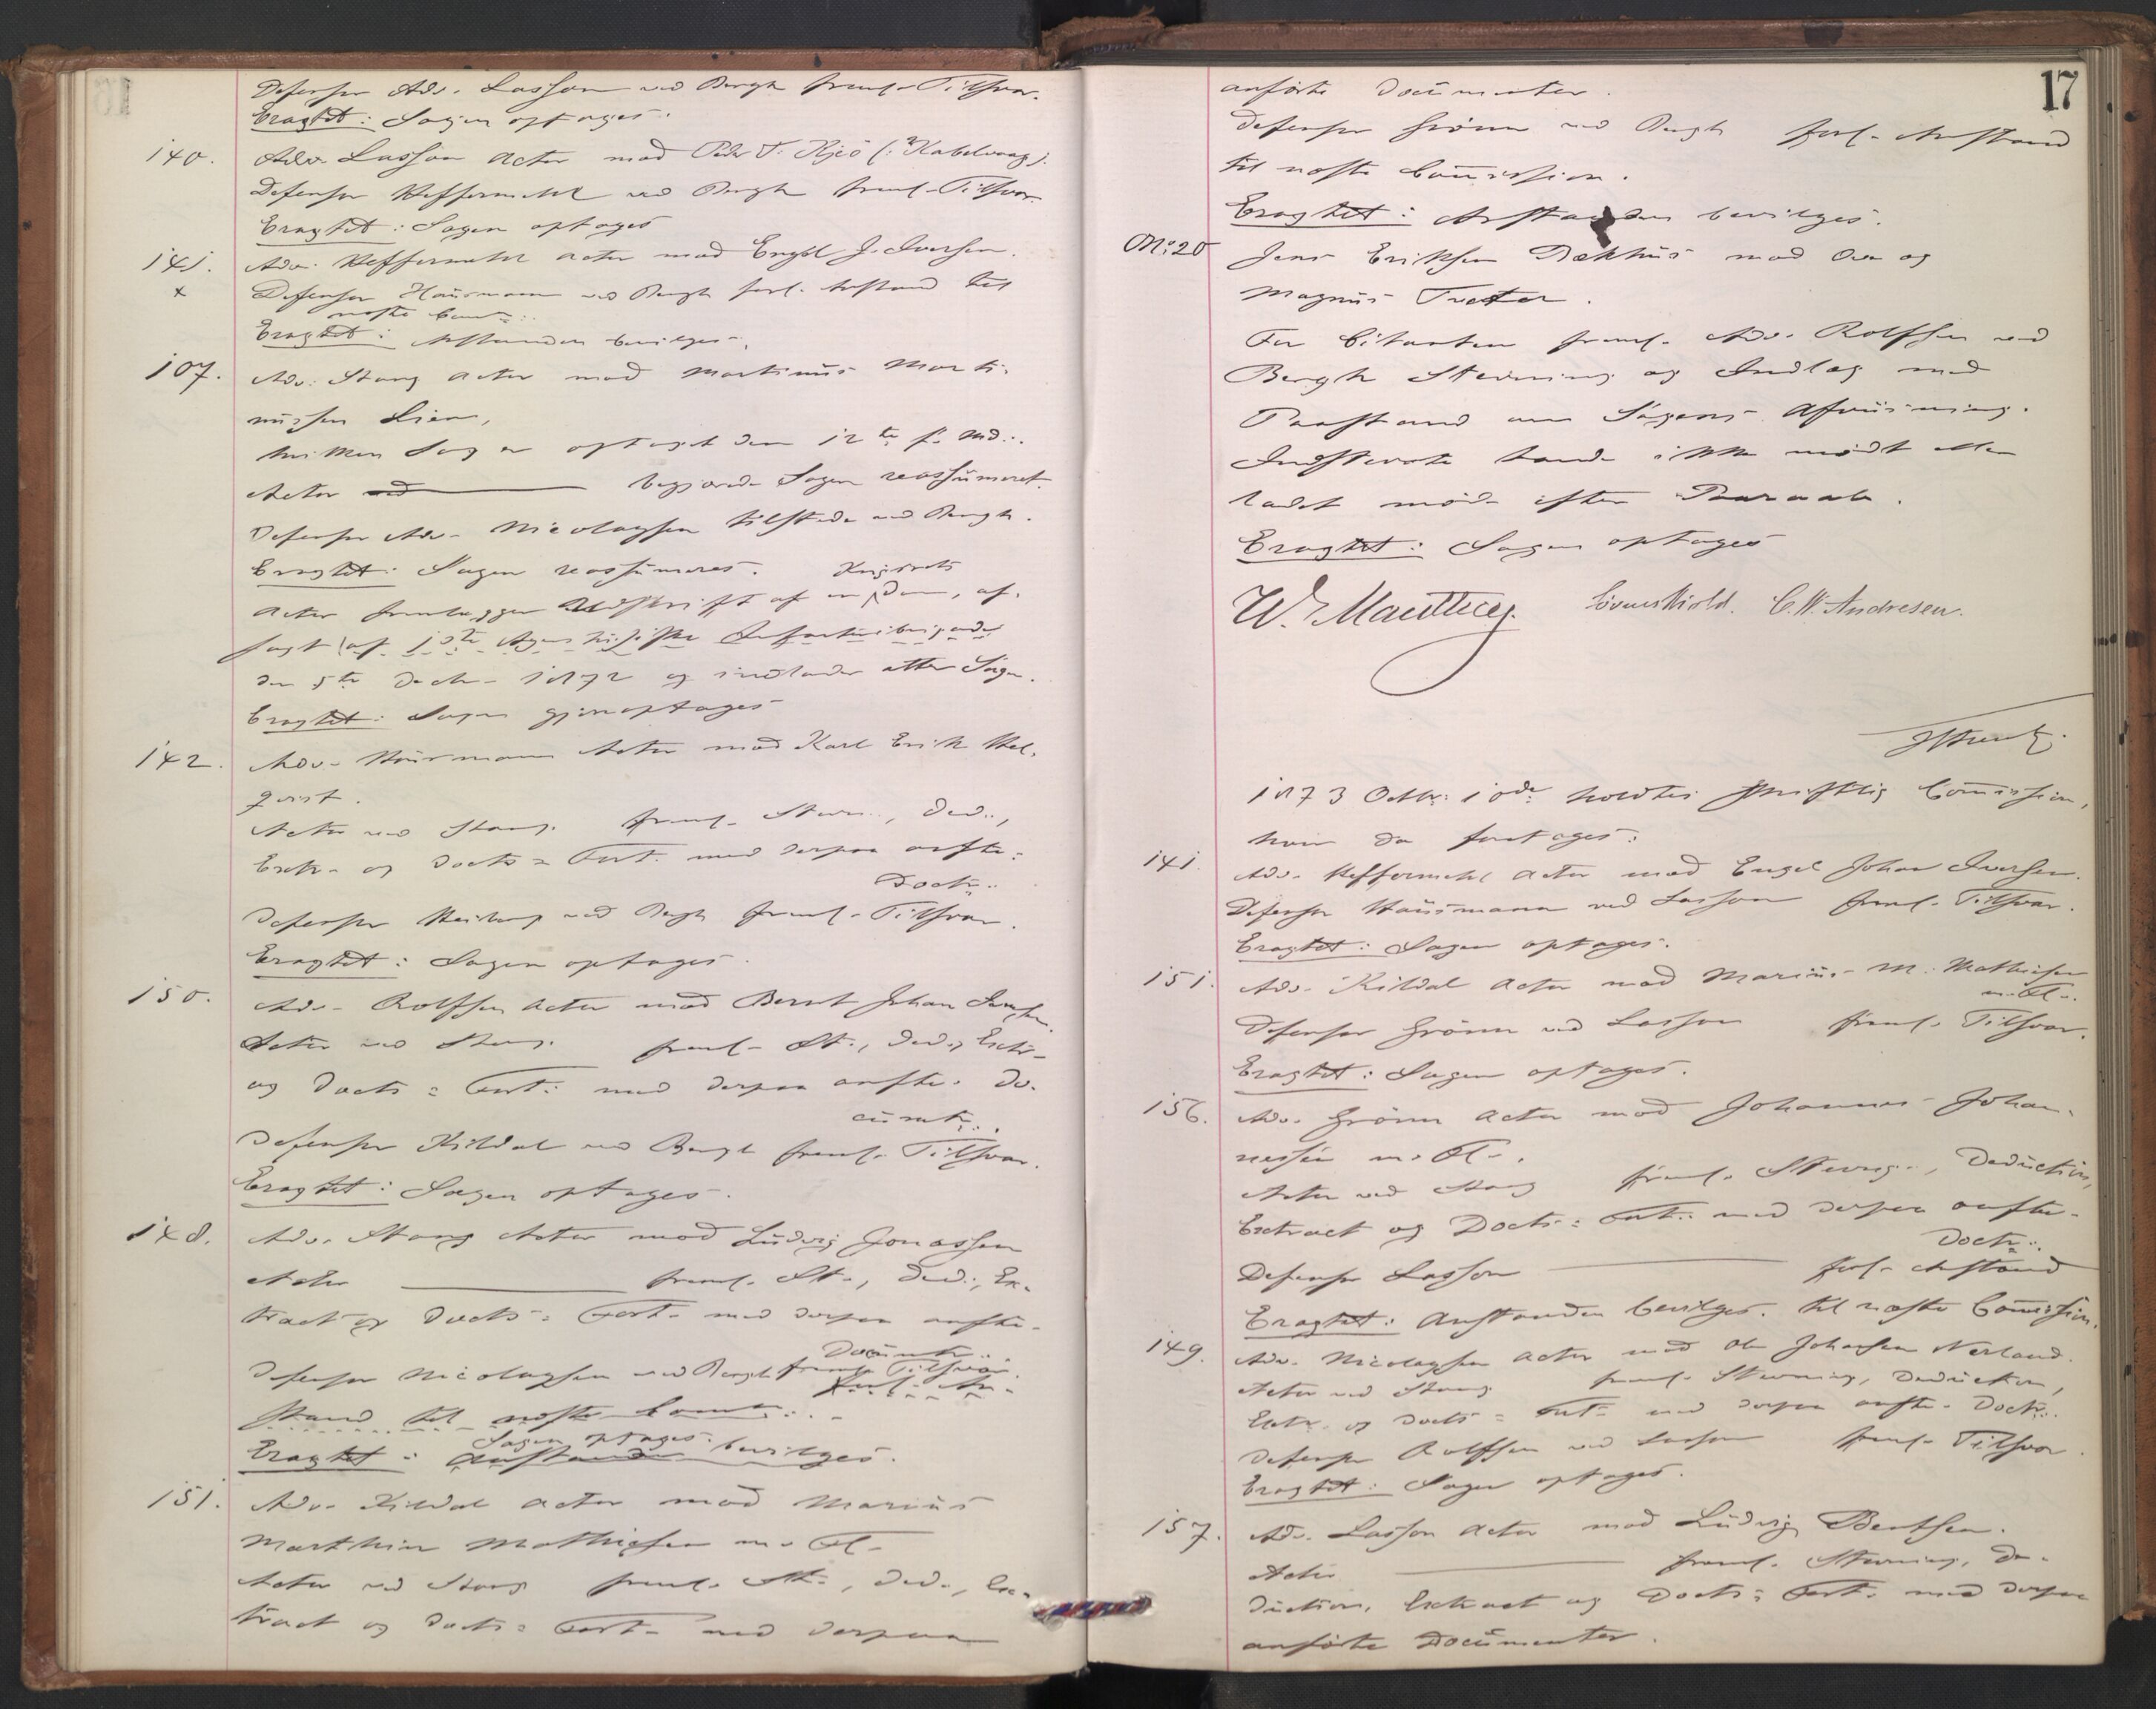 Defensor Adv. Lasson ved Bergh freml. Tilsvar.
Eragtet: Sagen optages.
140. Adv. Lasson Actor mod Peder T. Kjeö (: Kabelvaag).
Defensor Heffermehl ved Bergh freml. Tilsvar
Eragtet: Sagen optages
141. Adv. Heffermehl Actor mod Engel J. Iversen.
x Defensor Hausmann ved Bergh forl. Anstand til
næste Com:
Eragtet: Anstanden bevilges.
107. Adv. Stang Actor mod Martinus Marti-
nussen Lien,
hvilken Sag er optaget den 12te f. Md.
Actor begjærede Sagen reassumeret.
Defensor Adv. Nicolaysen tilstede ved Bergh.
Eragtet: Sagen reassumeres.
Krigsrets
Actor fremlægger Udskrift af en Dom, af-
sagt af Infanteribrigade
den 5te Decbr. 1872 og indlader atter Sagen.
Eragtet: Sagen gjenoptages
142. Adv. Hausmann Actor mod Karl Erik Hel-
qvist.
Actor ved Stang freml. Stevn., Ded.,
Extr. og Docts = Fort. med derpaa anfte:
Doctr.
Defensor Heiberg ved Bergh freml. Tilsvar.
Eragtet: Sagen optages.
150. Adv. Rolfsen Actor mod Bernt Johan
Actor ved Stang freml. St., Ded., Extr.
og Docts = Fort: med derpaa anfte. Do-
cumtr.
Defensor Kildal ved Bergh freml. Tilsvar.
Eragtet: Sagen optages.
148. Adv. Stang Actor mod Ludvig Jonassen
Actor freml. St., Ded., Ex-
tract og Docts = Fort. med derpaa anfte.
Documtr.
Defensor Nicolaysen ved Bergh freml. Tilsvar.
forl. An-
stand til næste Comm:
Sagen optages.
Eragtet: Anstanden bevilges.
151. Adv. Kildal Actor mod Marius
Marthin Mathiesen m. Fl.
Actor ved Stang freml. St., Ded., Ex-
tract og Docts = Fort. med derpaa
17
anførte Documenter.
Defensor Grönn ved Bergh forl. Anstand
til næste Comission.
Eragtet: Anstanden bevilges.
No: 20 Jens Eriksen Dækhus mod Ova og
Magnus Træter.
For Citanten freml. Adv. Rolfsen ved
Bergh Stevning og Indlæg med
Paastand om Sagens Afviisning.
Indstevnte havde ikke mødt eller
ladet møde efter Paaraab.
Eragtet: Sagen optages
W. Manthey. Løvenskiold. C. W. Andresen.
1873 Octbr: 10de holdtes skriftlig Comission,
hvor da foretages:
141. Adv. Heffermehl Actor mod Engel Johan Iversen.
Defensor Hausmann ved Lasson freml. Tilsvar.
Eragtet: Sagen optages.
151. Adv. Kildal Actor mod Marius M. Mathiesen
m. Fl.
Defensor Grönn ved Lasson freml. Tilsvar.
Eragtet: Sagen optages.
156. Adv. Grönn Actor mod Johannes Johan-
nessen m. Fl.
Actor ved Stang freml. Stevng., Deduction,
Extract og Docts = Fort. med derpaa anfte.
Doctr.
Defensor Lasson forl. Anstand
Eragtet: Anstanden bevilges til næste Comission.
149. Adv. Nicolaysen Actor mod Ole Johansen Nerland.
Actor ved Stang freml. Stevning, Deduction,
Extr. og Docts = Fort. med derpaa anfte. Doctr.
Defensor Rolfsen ved Lasson freml. Tilsvar.
Eragtet: Sagen optages.
157. Adv. Lasson Actor mod Ludvig Bentsen.
Actor freml. Stevning, De-
duction, Extract og Docts = Fort. med derpaa
anførte Documenter.